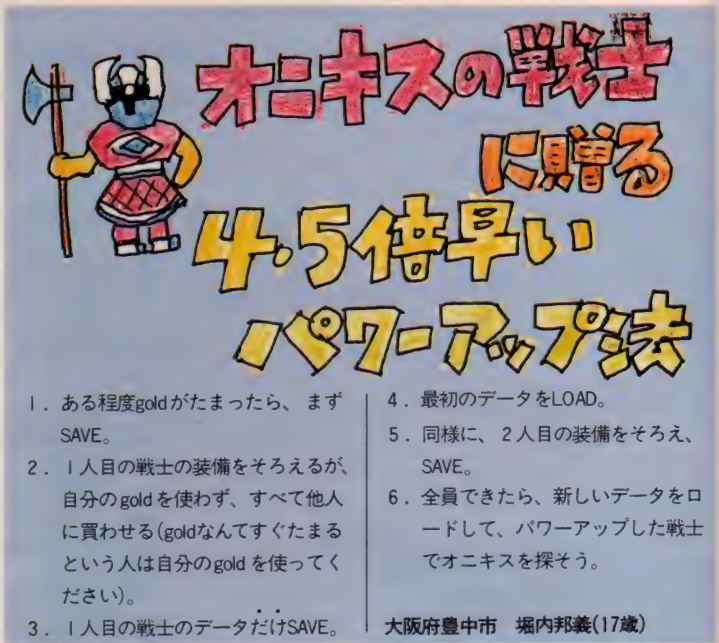 オニキスの戦士
に贈る
4・5倍早い
パワーアップ法
1. ある程度goldがたまったら、まず
SAVE。
2. 1人目の戦士の装備をそろえるが、
自分のgoldを使わず、すべて他人
に買わせる(goldなんてすぐたまる
という人は自分のgoldを使ってく
ださい)。
3. 1人目の戦士のデータだけSAVE。
4. 最初のデータをLOAD。
5. 同様に、2人目の装備をそろえ、
SAVE。
6. 全員できたら、新しいデータをロ
ードして、パワーアップした戦士
でオニキスを探そう。
大阪府豊中市 堀内邦義(17歳)